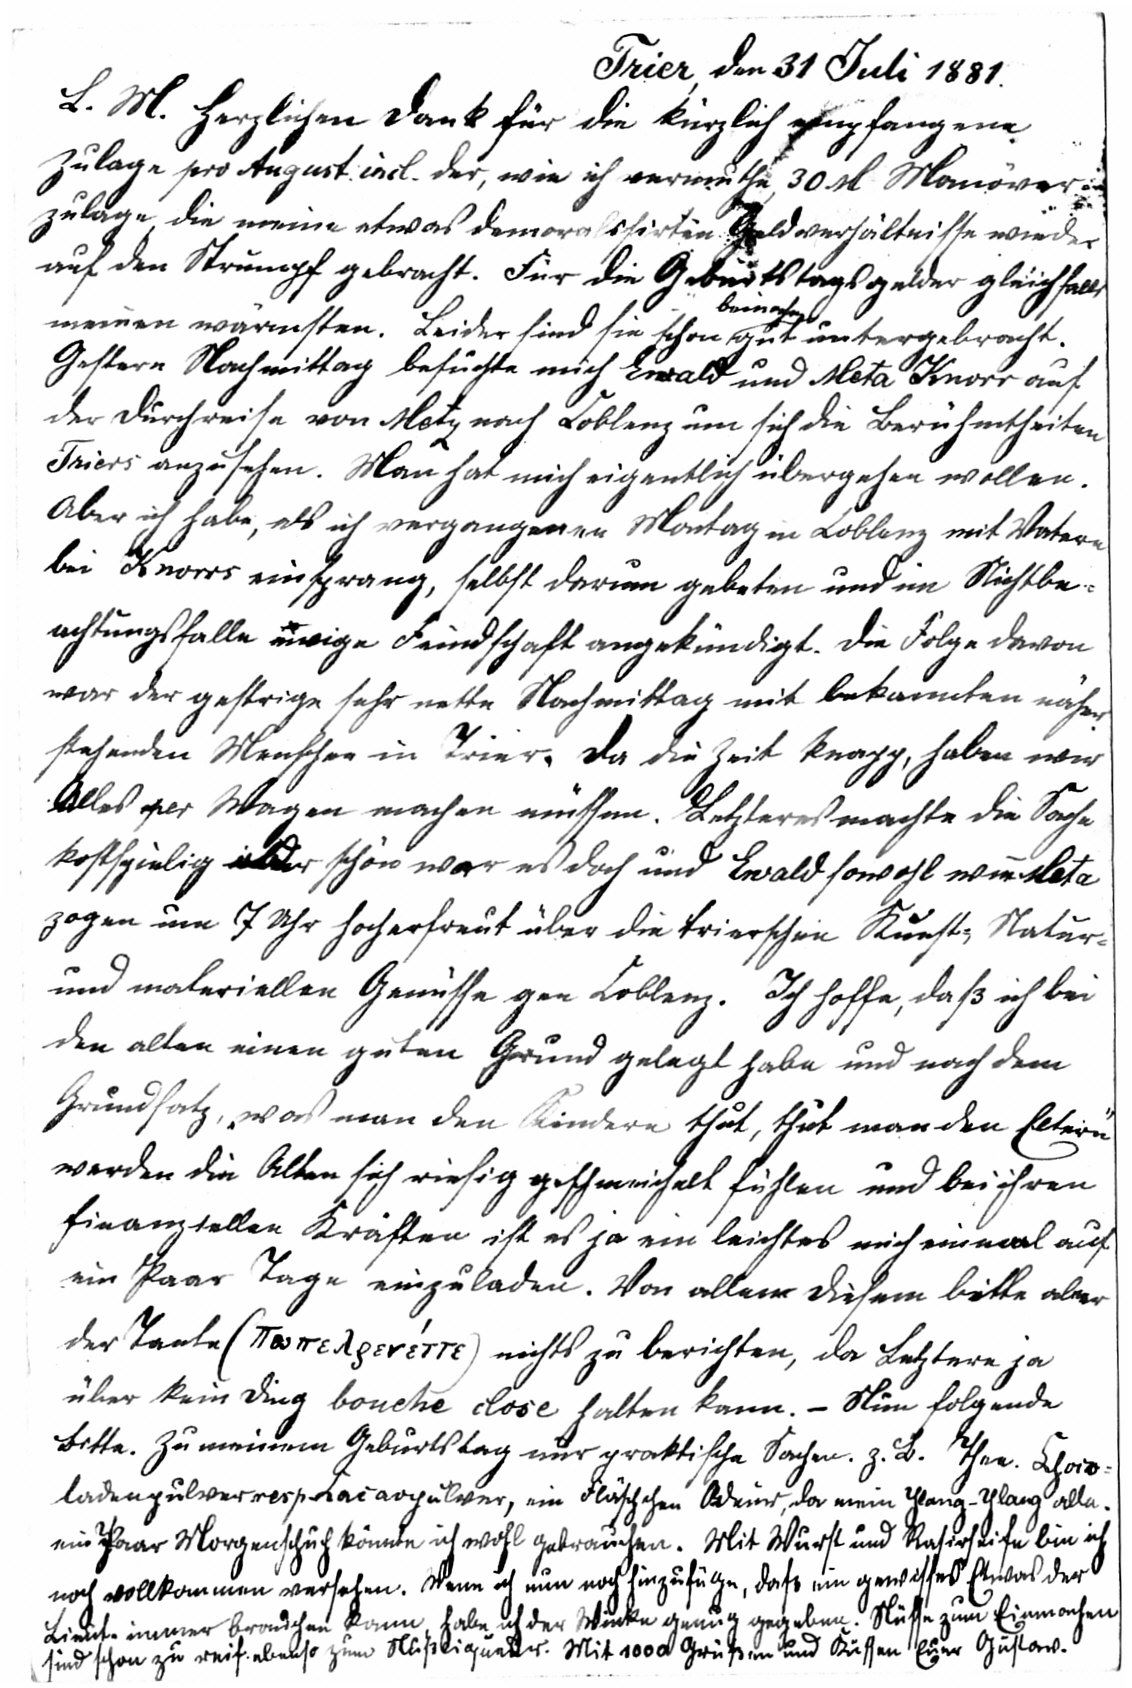 Trier, den 31 Juli 1881.
L. M. Herzlichen Dank für die kürzlich empfangene
Zulage pro August incl. der, wie ich vermuthe, 30 M Manöver-
zulage, die meine etwas demoralisirten Geldverhältnisse wieder
auf den Strumpf gebracht. Für die Geburtstagsgelder gleichfalls
beinahe
meinen wärmsten. Leider sind sie schon gut untergebracht.
Gestern Nachmittag besuchte mich Ewald und Meta Knorr auf
der Durchreise von Metz nach Coblenz um sich die Berühmtheiten
Triers anzusehen. Man hat mich eigentlich übergehen wollen.
Aber ich habe, als ich vergangenen Montag in Coblenz mit Vatern
bei Knorrs einsprang, selbst darum gebeten und im Nichtbe-
achtungsfalle ewige Feindschaft angekündigt. Die Folge davon
war der gestrige sehr nette Nachmittag mit bekannten näher
stehenden Menschen in Trier. Da die Zeit knapp, haben wir
Alles per Wagen machen müssen. Letzteres machte die Sache
kostspielig aber schön war es doch und Ewald sowohl wie Meta
zogen um 7 Uhr hocherfreut über die trierschen Kunst-, Natur-
und materiellen Genüsse gen Coblenz. Ich hoffe, daß ich bei
den alten einen guten Grund gelegt habe und nach dem
Grundsatz, „was man den Kindern thut, thut man den Eltern"
werden die Alten sich riesig geschmeichelt fühlen und bei ihren
finanziellen Kräften ist es ja ein leichtes mich einmal auf
ein Paar Tage einzuladen. Von allem diesem bitte aber
der Tante (Πωπελρενέττε) nichts zu berichten, da Letztere ja
über kein Ding bouche close halten kann. – Nun folgende
Bitte. Zu meinem Geburtstag nur praktische Sachen. z. B. Thee. Choco-
ladenpulver resp. Cacaopulver, ein Fläschchen Odeur, da mein Ylang-Ylang alle.
ein Paar Morgenschuh könnte ich wohl gebrauchen. Mit Wurst und Rasirseife bin ich
noch vollkommen versehen. Wenn ich nun noch hinzufüge, daß ein gewisses Etwas der
Lieut. immer brauchen kann, habe ich der Winke genug gegeben. Nüsse zum Einmachen
sind schon zu reif. ebenso zum Nußliqueur. Mit 1000 Grüßen und Küssen Euer Gustav.